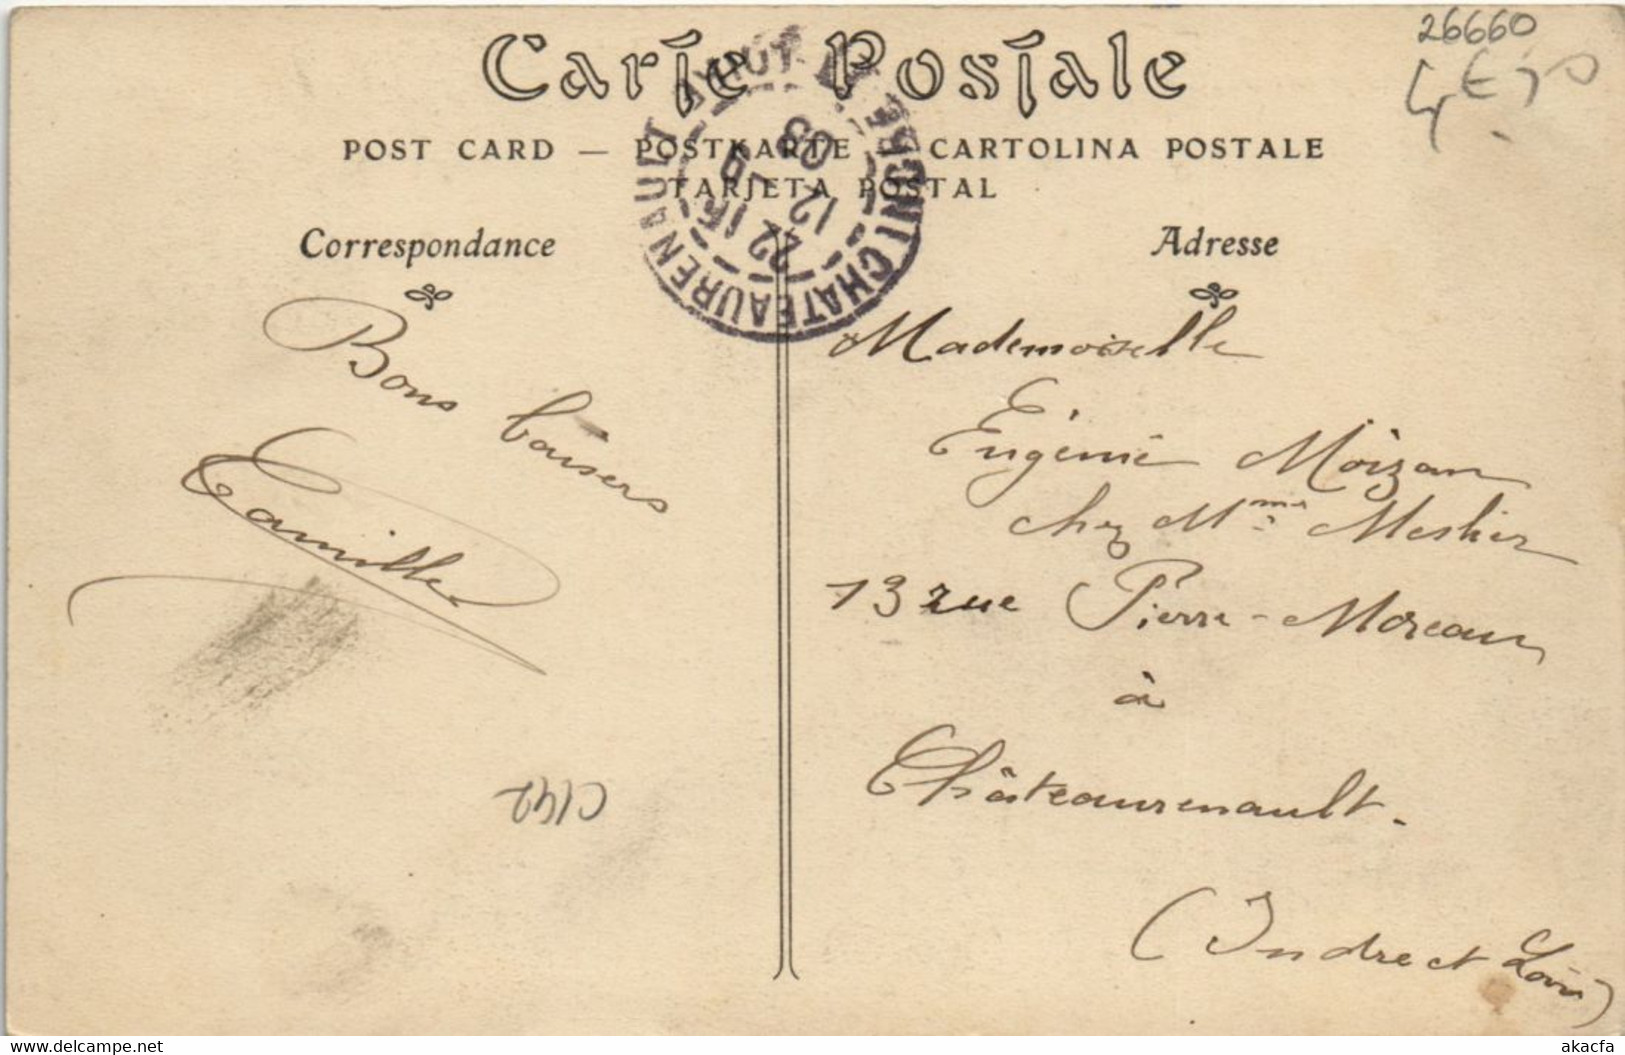 Carte Postale
POST CARD — POSTKARTE — CARTOLINA POSTALE
TARJETA POSTAL
26660
Correspondance
Adresse
CHATEAURENAULT
22
12
03
Bons baisers
Camille
C142
Mademoiselle
Eugénie Moizan
chez Mme
13 rue Pierre-Moreau
à
Châteaurenault.
(Indre et Loire)
www.delcampe.net
akacfa